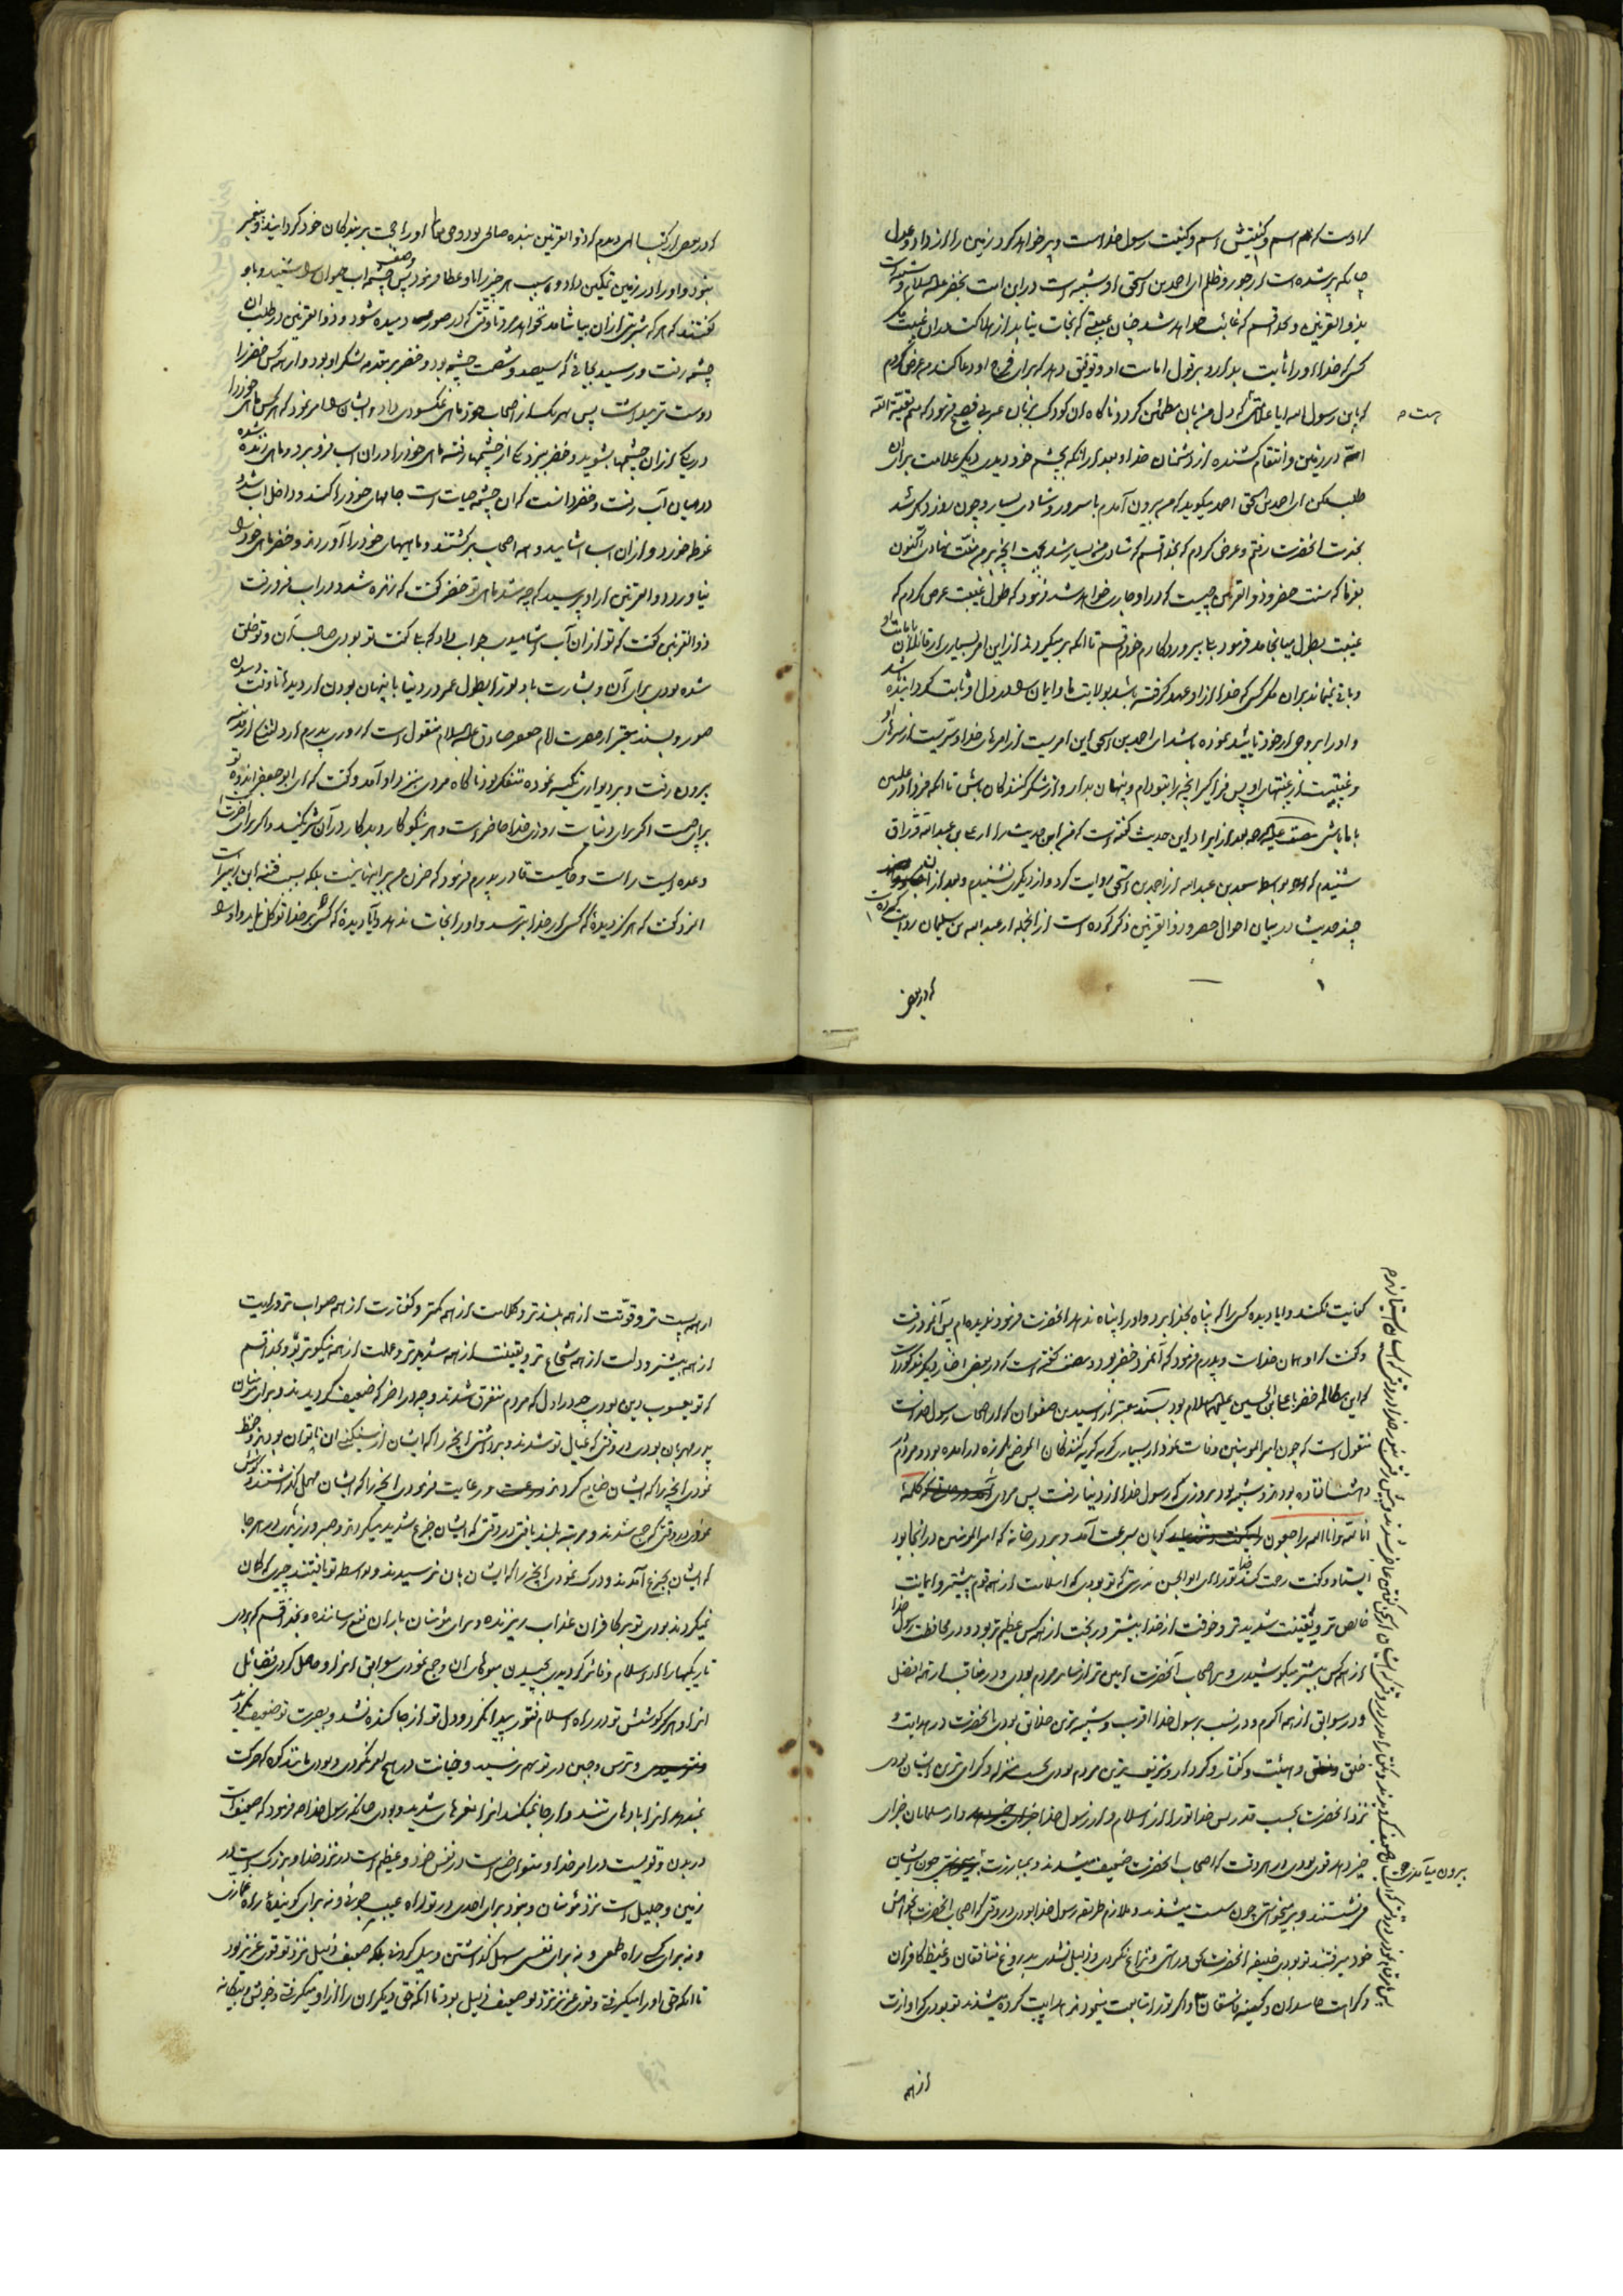 که اوست که هم اسم و کنیتش اسم و کنیت رسول خداست و پر خواهد کرد زمین را از داد و عدل
چنانکه پر شده است از جور و ظلم ای احمد بن اسحق او شبیه است در این امت بخضر علیه السلام و شبیه است
بذوالقرنین و بخدا قسم که غائب خواهد شد چنان غیبتی که نجات نیابد از هلاکت در آن غیبت مگر
کسی که خدا او را ثابت بدارد بر قول امامت او و توفیق دهد که برای فرج او دعا کند من عرض کردم
که یابن رسول الله ایا علامتی هست که دل من بآن مطمئن گردد ناگاه آن کودک بزبان عربی فصیح فرمود که منم بقیة الله
در زمین و انتقام کشنده از دشمنان خدا و بعد از آنکه بچشم خود دیدی دیگر علامت برای آن
طلب مکن ای احمد بن اسحق احمد میگوید که من بیرون آمدم با سرور و شادی بسیار و چون روز دیگر شد
بخدمت آنحضرت رفتم و عرض کردم که بخدا قسم که شادی من بسیار شد بجهت آنچه بر من منت نهادی اکنون
بفرما که سنت خضر و ذوالقرنین چیست که در او جاری خواهد شد فرمود که طول غیبت عرض کردم که
غیبت بطول میانجامد فرمود بلی بپروردگارم خودم قسم تا آنکه برمیگردند از این امر بسیاری از قائلان بامامت او
و باقی نمیماند بر آن مگر کسی که خدا از او عهد گرفته باشد بولایت ما و ایمان را در دل او ثابت گردانیده
و او را بروحی از خود تایید نموده باشد ای احمد بن اسحق این امریست از امرهای خدا و سریست از سرهای او
و غیبتیست از غیبتهای او پس فراگیر آنچه را بتو دادم و پنهان بدار و از شکر کنندگان باش تا آنکه فردا در علیین
با ما باشی مصنف علیه الرحمه بعد از ایراد این حدیث گفته است که من این حدیث را از علی بن عبدالله وراق
شنیدم که او بواسطه سعد بن عبدالله از احمد بن اسحق روایت کرد و از دیگری نشنیدم و بعد از آن
چند حدیث در بیان احوال خضر و ذوالقرنین ذکر کرده است از آنجمله از عبدالله بن سلیمان روایت کرده است
که در بعض
که در بعض از کتب الهی دیدم که ذوالقرنین بنده صالحی بود و حق تعالی او را حجت بر بندگان خود گردانید و پیغمبر
نبود و او را در زمین تمکین داد و سبب هر چیز را باو عطا فرمود پس وصف چشمه آب حیوان را شنید و باو
گفتند که هر که شربتی از آن بیاشامد نخواهد مرد تا وقتی که در صور دمیده شود و ذوالقرنین در طلب آن
چشمه رفت و رسید بجائی که سیصد و شصت چشمه بود و خضر بر مقدمه لشکر او بود و از همه کس خضر را
دوست تر میداشت پس بهر یک از اصحاب خود ماهی نمکسودی داد و ایشان را امر نمود که هر کس ماهی خود را
در یکی از آن چشمها بشوید و خضر بنزد یکی از چشمها رفته ماهی خود را در آن آب فرو برد و ماهی زنده شده
در میان آب رفت و خضر دانست که آن چشمه حیات است جامهای خود را کند و داخل آب شد و
غوطه خورد و از آن آب آشامید و همه اصحاب برگشتند و ماهیهای خود را آوردند و خضر ماهی خود را
نیاورد و ذوالقرنین از او پرسید که چه شد ماهی تو خضر گفت که زنده شد و در آب فرو رفت
ذوالقرنین گفت که تو از آن آب آشامیدی جواب داد که بلی گفت تو بودی صاحب آن و تو خلق
شده بودی برای آن و بشارت باد تو را بطول عمر در دنیا با پنهان بودن از دیدها تا وقت دمیدن
صور و بسند معتبر از حضرت امام جعفر صادق علیه السلام منقول است که روزی پدرم از مدینه
بیرون رفت و بر دیواری تکیه نموده متفکر بود ناگاه مردی بنزد او آمد و گفت که ای ابو جعفر اندوه تو
برای چیست اگر برای دنیاست روزی خدا حاضر است و هر نیکوکار و بدکار در آن شریکند و اگر برای آخرتست
وعده است راست و حاکمیست قادر پدرم فرمود که حزن من برای اینها نیست بلکه بسبب فتنه ابن زبیر است
آنمرد گفت که هرگز دیدهٔ که کسی از خدا بترسد و او را نجات ندهد و آیا دیدهٔ که کسی بر خدا توکل نماید و او را
کفایت نکند و ایا دیده کسی را که پناه بخدا برد و او را پناه ندهد آنحضرت فرمود ندیده ام پس آنمرد رفت
و گفت که او همان خداست و پدرم فرمود که آنمرد خضر بود و مصنف گفته است که در بعض اخبار دیگر مذکور است
که این مکالمه خضر با علی بن الحسین علیهما السلام بود و بسند معتبر از اسید بن صفوان که از اصحاب رسول خداست
منقول است که چون امیر المؤمنین وفات نمود از بسیاری گریه گریه کنندگان آنموضع بلرزه درآمده بود و مردم
دهشت افتاده بودند و شبیه بود بروزی که رسول خدا از دنیا رفت پس مردی
انا لله و انا الیه راجعون گویان بسرعت آمد و بر در خانه که امیر المؤمنین در آنجا بود
ایستاد و گفت رحمت کند خدا تو را ای ابوالحسن بدرستی که تو بودی که اسلامت از همه قوم پیشتر و ایمانت
خالص تر و یقینت شدیدتر و خوفت از خدا بیشتر و رنجت از همه کس عظیم تر بود و در محافظت رسول خدا
از همه کس بیشتر میکوشیدی و بر اصحاب آنحضرت امین تر از سایر مردم بودی و در مناقب از همه افضل
و در سوابق از همه اکرم و در نسب برسول خدا اقرب و شبیه ترین خلائق بودی بآنحضرت در هدایت و
خلق و هیئت و گفتار و کردار و شریف ترین مردم بودی بحسب منزله و گرامی ترین ایشان بودی
نزد آنحضرت بحسب قدر پس خدا تو را از اسلام و از رسول خدا و از مسلمانان جزای
خیر دهد قوی بودی در هر وقت که اصحاب آنحضرت ضعیف میشدند و بمبارزت بیرون میآمدی چون ایشان
می نشستند و برمیخواستی چون سست میشدند و ملازم طریقه رسول خدا بودی در وقتی که اصحاب آنحضرت بخواهش
خود میرفتند تو بودی خلیفه آنحضرت بحق و راستی و نزاع نکردی و ذلیل نشدی بدروغ منافقان و غیظ کافران
و کراهت حاسدان و کینه فاسقان و اگر تو را متابعت مینمودند هدایت کرده میشدند تو بودی که آوازت
از همه
از همه پست تر و قوتت از همه بلندتر و کلامت از همه کمتر و گفتارت از همه صواب تر و رایت
از همه بیشتر و دلت از همه شجاع تر و یقینت از همه شدیدتر و عملت از همه نیکوتر بود و بخدا قسم
که تو یعسوب دین بودی چه در اول که مردم متفرق شدند و چه در آخر که ضعیف گردیدند و برای مؤمنان
پدر مهربان بودی در وقتی که عیال تو شدند و برداشتی آنچه را که ایشان از سنگینی آن ناتوان بودند و حفظ
نمودی آنچه را که ایشان ضایع کردند و رعایت فرمودی آنچه را که ایشان مهمل گذاشتند و کوشش
نمودی در وقتی که جمع شدند و مرتبه بلند یافتی در وقتی که ایشان جزع شدید میکردند و صبر ورزیدی در هر جا
که ایشان بجزع آمدند و درک نمودی آنچه را که ایشان بآن نرسیدند و بواسطه تو یافتند چیزی که گمان
نمیکردند بودی تو بر کافران عذاب ریزنده و برای مؤمنان باران نفع رساننده و بخدا قسم که بودی
انرا و هرگز کوشش تو در راه اسلام فتور پیدا نکرد و دل تو از جا کنده نشد و بصیرت تو ضعیف نگردید
و ترس و جبن در تو بهم نرسید و خیانت در هیچ امر نکردی و بودی مانند کوه که حرکت
نمیدهد انرا بادهای تند و از جا نمیکند انرا لغزهای شدید و بودی چنانکه رسول خدا فرمود که ضعیف است
در بدن و قویست در امر خدا و متواضع است در نفس خود و عظیم است در نزد خدا و بزرگ است در
زمین و جلیل است نزد مؤمنان و نبود برای احدی در تو راه عیب جوئی و نه برای گویندهٔ راه غمازی
و نه برای کسی راه طمعی و نه برای نفسی سهل گذاشتن و میل کردن بلکه ضعیف ذلیل نزد تو قوی عزیز بود
تا آنکه حق او را میگرفتی و قوی عزیز نزد تو ضعیف ذلیل بود تا آنکه حق دیگران را از او میگرفتی و خویش و بیگانه